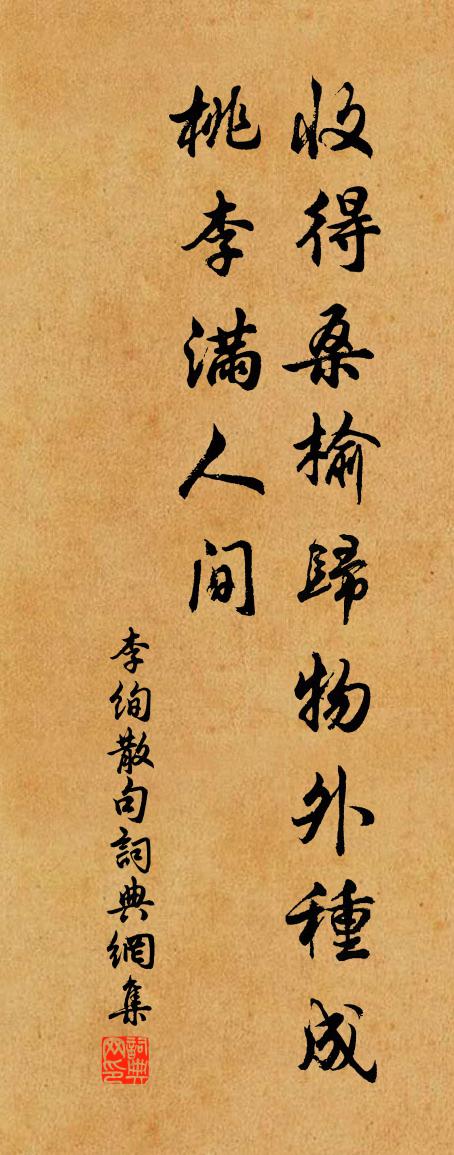 收得桑榆歸物外種成
桃李滿人間
李絢散句詞典網集
詞典網印